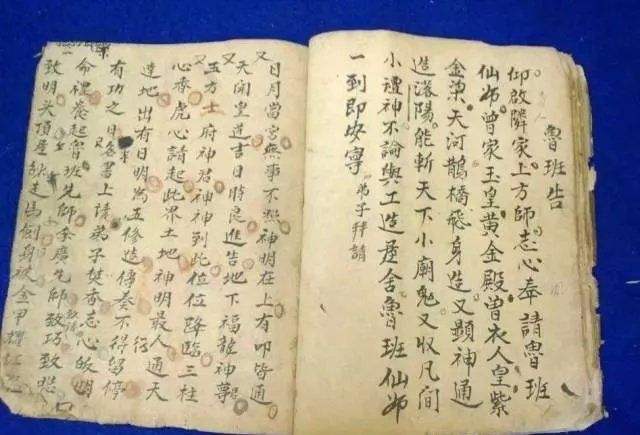 魯班告
仰啟隣家上方師志心奉請魯班
仙师曾家玉皇黄金殿曾衣人皇紫
金梁天河鵲橋飛身造又顕神通
造瀋陽能斬天下小廟鬼又收凡間
小禮神不論與工造屋舍魯班仙师
一到即安寧 弟子拜請
又日月當空無事不照神明在上有叩皆通
又天開皇道吉日時良進告地下福龍神尊
又五方土府神君神神到此位位降臨三柱
心香虎心請起此界土地神明最人通天
達地出有日明為五修造傳奏不得留停
有功之日名書上請弟子焚香志心皈明
命禮起魯班先師先師致巧致
致明头頂走馬身披金甲